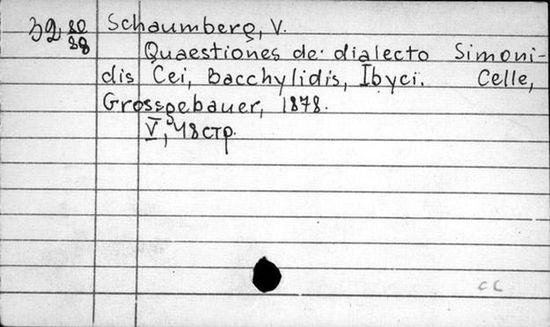 39 20/28 Schaumberg, V.
Quaestiones de dialecto Simoni-
dis Cei, Bacchylidis, Ibyci. Celle,
Grossgebauer, 1878.
V, 48 стр.
CC